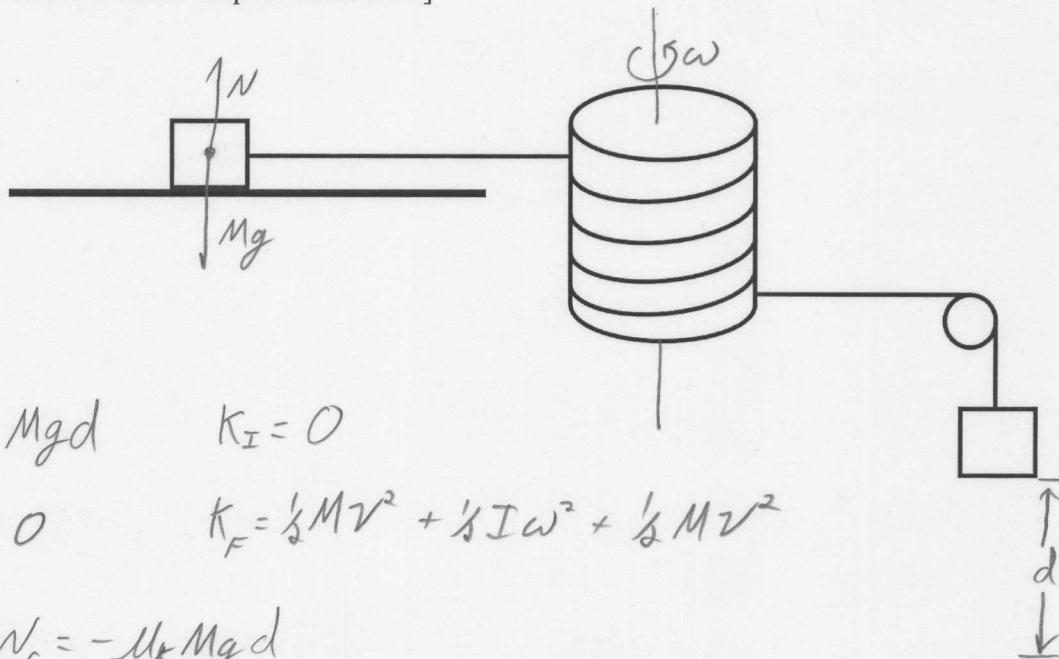 N
ω
Mg
Mgd K_I = 0
0 K_F = ½Mv² + ½Iω² + ½Mv²
d
= -μ_k Mgd